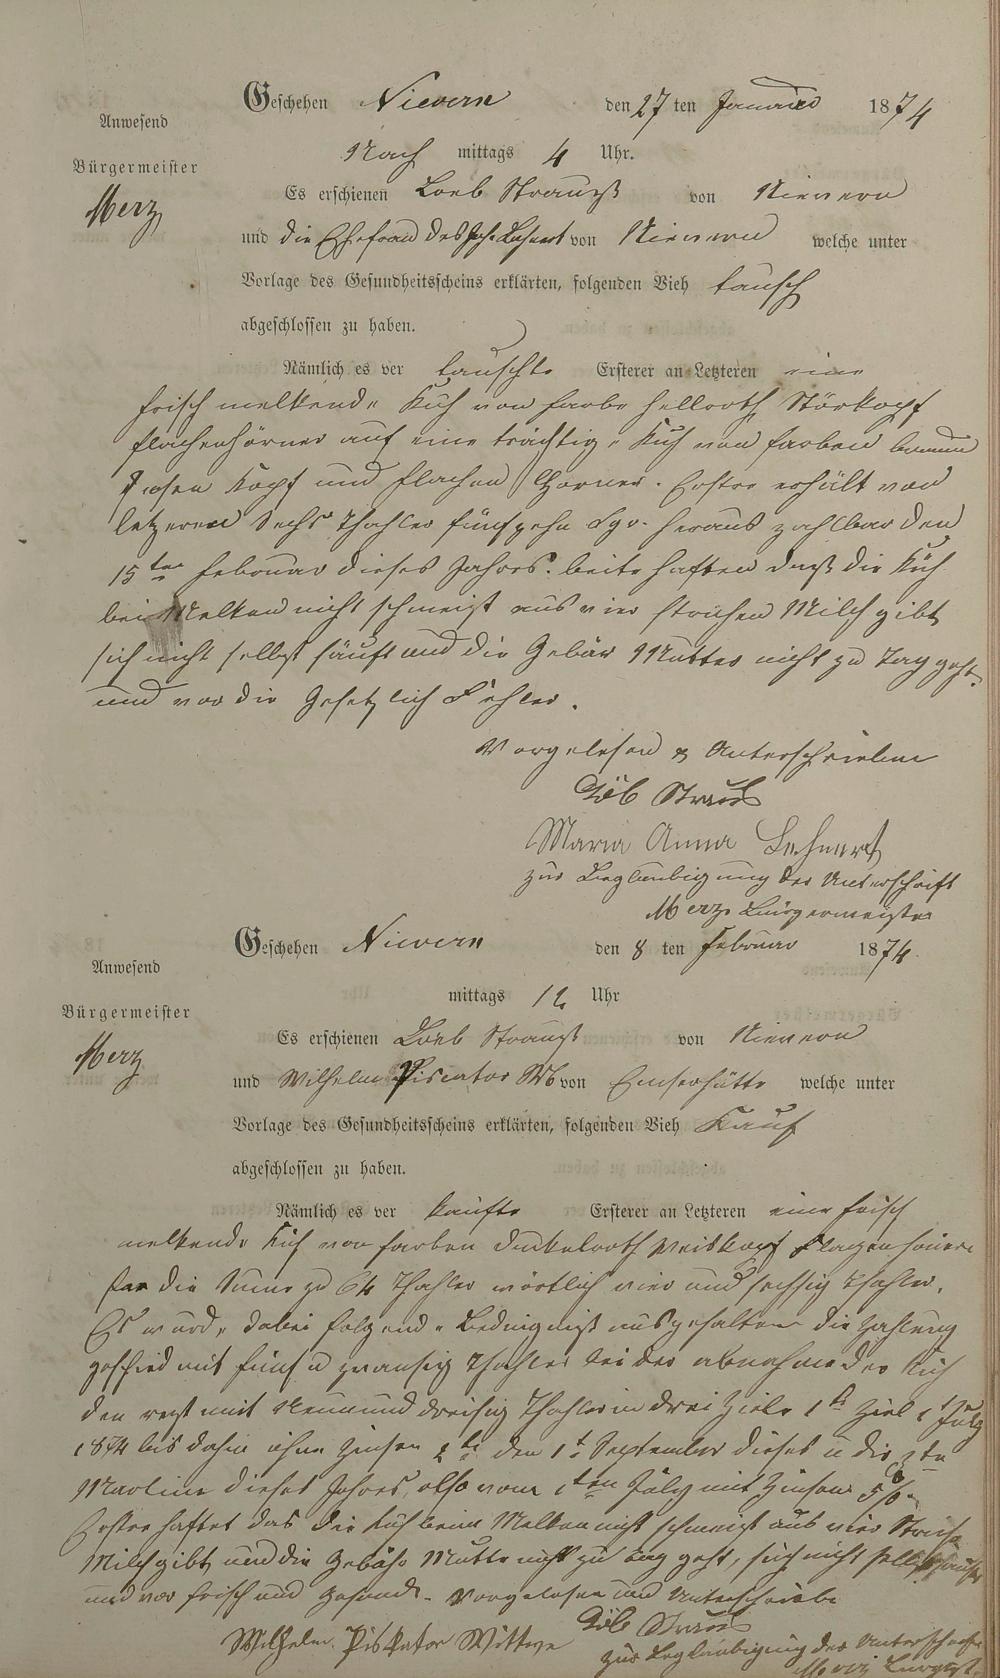 Geschehen Nievern den 27 ten Januar 1874
Anwesend
Nach mittags 4 Uhr.
Bürgermeister
Es erschienen Loeb Strauß von Nievern
Merz
und die Ehefrau des Joh. Lehnert von Nievern welche unter
Vorlage des Gesundheitsscheins erklärten, folgenden Vieh tausch
abgeschlossen zu haben.
Nämlich es ver tauschte Ersterer an Letzteren eine
frisch melkende Kuh von farbe hellroth Störkopf
flachenhörner auf eine trächtige Kuh von farben braun
Kopf und flachen Hörner. Erster erhält von
letzeren Sechs Thaler fünfzehn Sgr. heraus zahlbar den
15ten Februar dieses Jahres. beite haften daß die Küh
bei Melken nicht schmeizt aus vier strichen Milch gibt
sich nicht selbst säuft und die Gebär Mutter nicht zu Tag geht
und vor die Gesetzlich Fehler.
Vorgelesen & Unterschrieben
Löb Strauß
Maria Anna Lehnert
zur Beglaubigung der Unterschrift
Merz Bürgermeister
Geschehen Nievern den 8 ten Februar 1874.
Anwesend
mittags 12 Uhr
Bürgermeister
Es erschienen Loeb Strauß von Nievern
Merz
und Wilhelm Piscator Wb von Emserhütte welche unter
Vorlage des Gesundheitsscheins erklärten, folgenden Vieh Kauf
abgeschlossen zu haben.
Nämlich es ver kaufte Ersterer an Letzteren eine frisch
melkende Kuh von farben dunkelroth Weiskopf
für die Sume zu 64 Thaler wörtlich vier und sechsig Thaler.
Es wurde dabei folgende Bedingniß ausgehalten die Zahlung
geschied mit fünf u zwansig Thaler bei der abnahme der Kuh
den rest mit Neunund dreisig Thaler in drei Ziele 1te Ziel 1t July
1874 bis dahin ohne Zinsen 2te den 1t September dieses u die 3te
Martini dieses Jahres, also vom 1ten July mit Zinsen 5%.
Erster haftet das die Kuh beim Melken nicht schmeizt aus vier Striche
Milch gibt und die Gebähr Mutter nicht zu tag geht, sich nicht selbst sauft
und vor frisch und gesund. Vorgelesen und Unterschriebe
Löb Strauß
Wilhelm Piskator Wittwe
zur Beglaubigung der Unterschrift
Merz Burgmst.